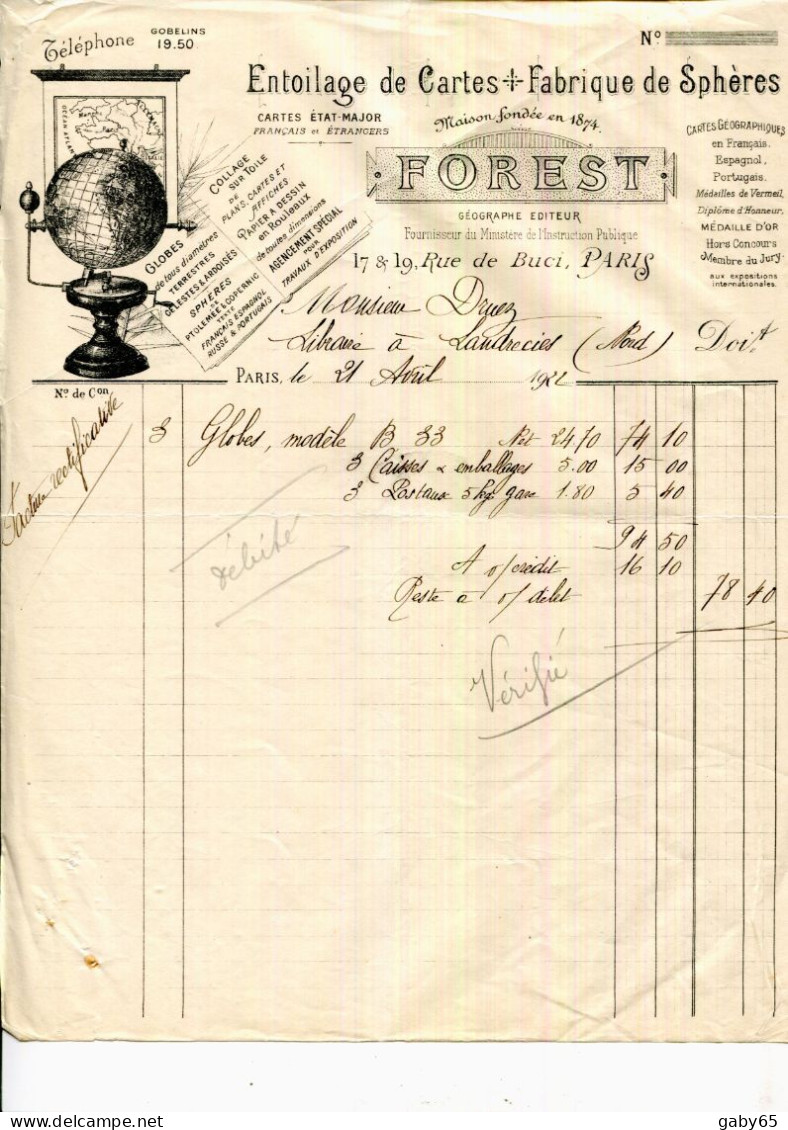 Téléphone GOBELINS 19.50
Nº
Entoilage de Cartes Fabrique de Sphères
CARTES ÉTAT-MAJOR
FRANÇAIS et ÉTRANGERS
Maison fondée en 1874.
FOREST
GÉOGRAPHE EDITEUR
Fournisseur du Ministère de l'Instruction Publique
17 & 19, Rue de Buci, PARIS
CARTES GÉOGRAPHIQUES
en Français.
Espagnol,
Portugais.
Médailles de Vermeil,
Diplôme d'Honneur,
MÉDAILLE D'OR
Hors Concours
Membre du Jury.
aux expositions
internationales.
COLLAGE
SUR TOILE
DE
PLANS, CARTES ET
AFFICHES
PAPIER A DESSIN
en Rouleaux
de toutes dimensions
AGENCEMENT SPÉCIAL
POUR
TRAVAUX D'EXPOSITION
GLOBES
de tous diamètres
TERRESTRES
CÉLESTES & ARDOISÉS
SPHÈRES
DE
PTOLÉMÉE & COPERNIC
TEXTE
FRANÇAIS ESPAGNOL
RUSSE & PORTUGAIS
OCÉAN ATLANT
Monsieur Druez
Libraire à Landrecies (Nord) Doit
PARIS, le 21 Avril 1922
Nº de Con
Facture rectificative
3 Globes, modèle B 33 Net 24 70 74 10
3 Caisses & emballages 5.00 15 00
3 Postaux 5 kg gare 1.80 5 40
94 50
A v/ crédit 16 10
Reste à v/ débit 78 40
débité
Vérifié
gaby65